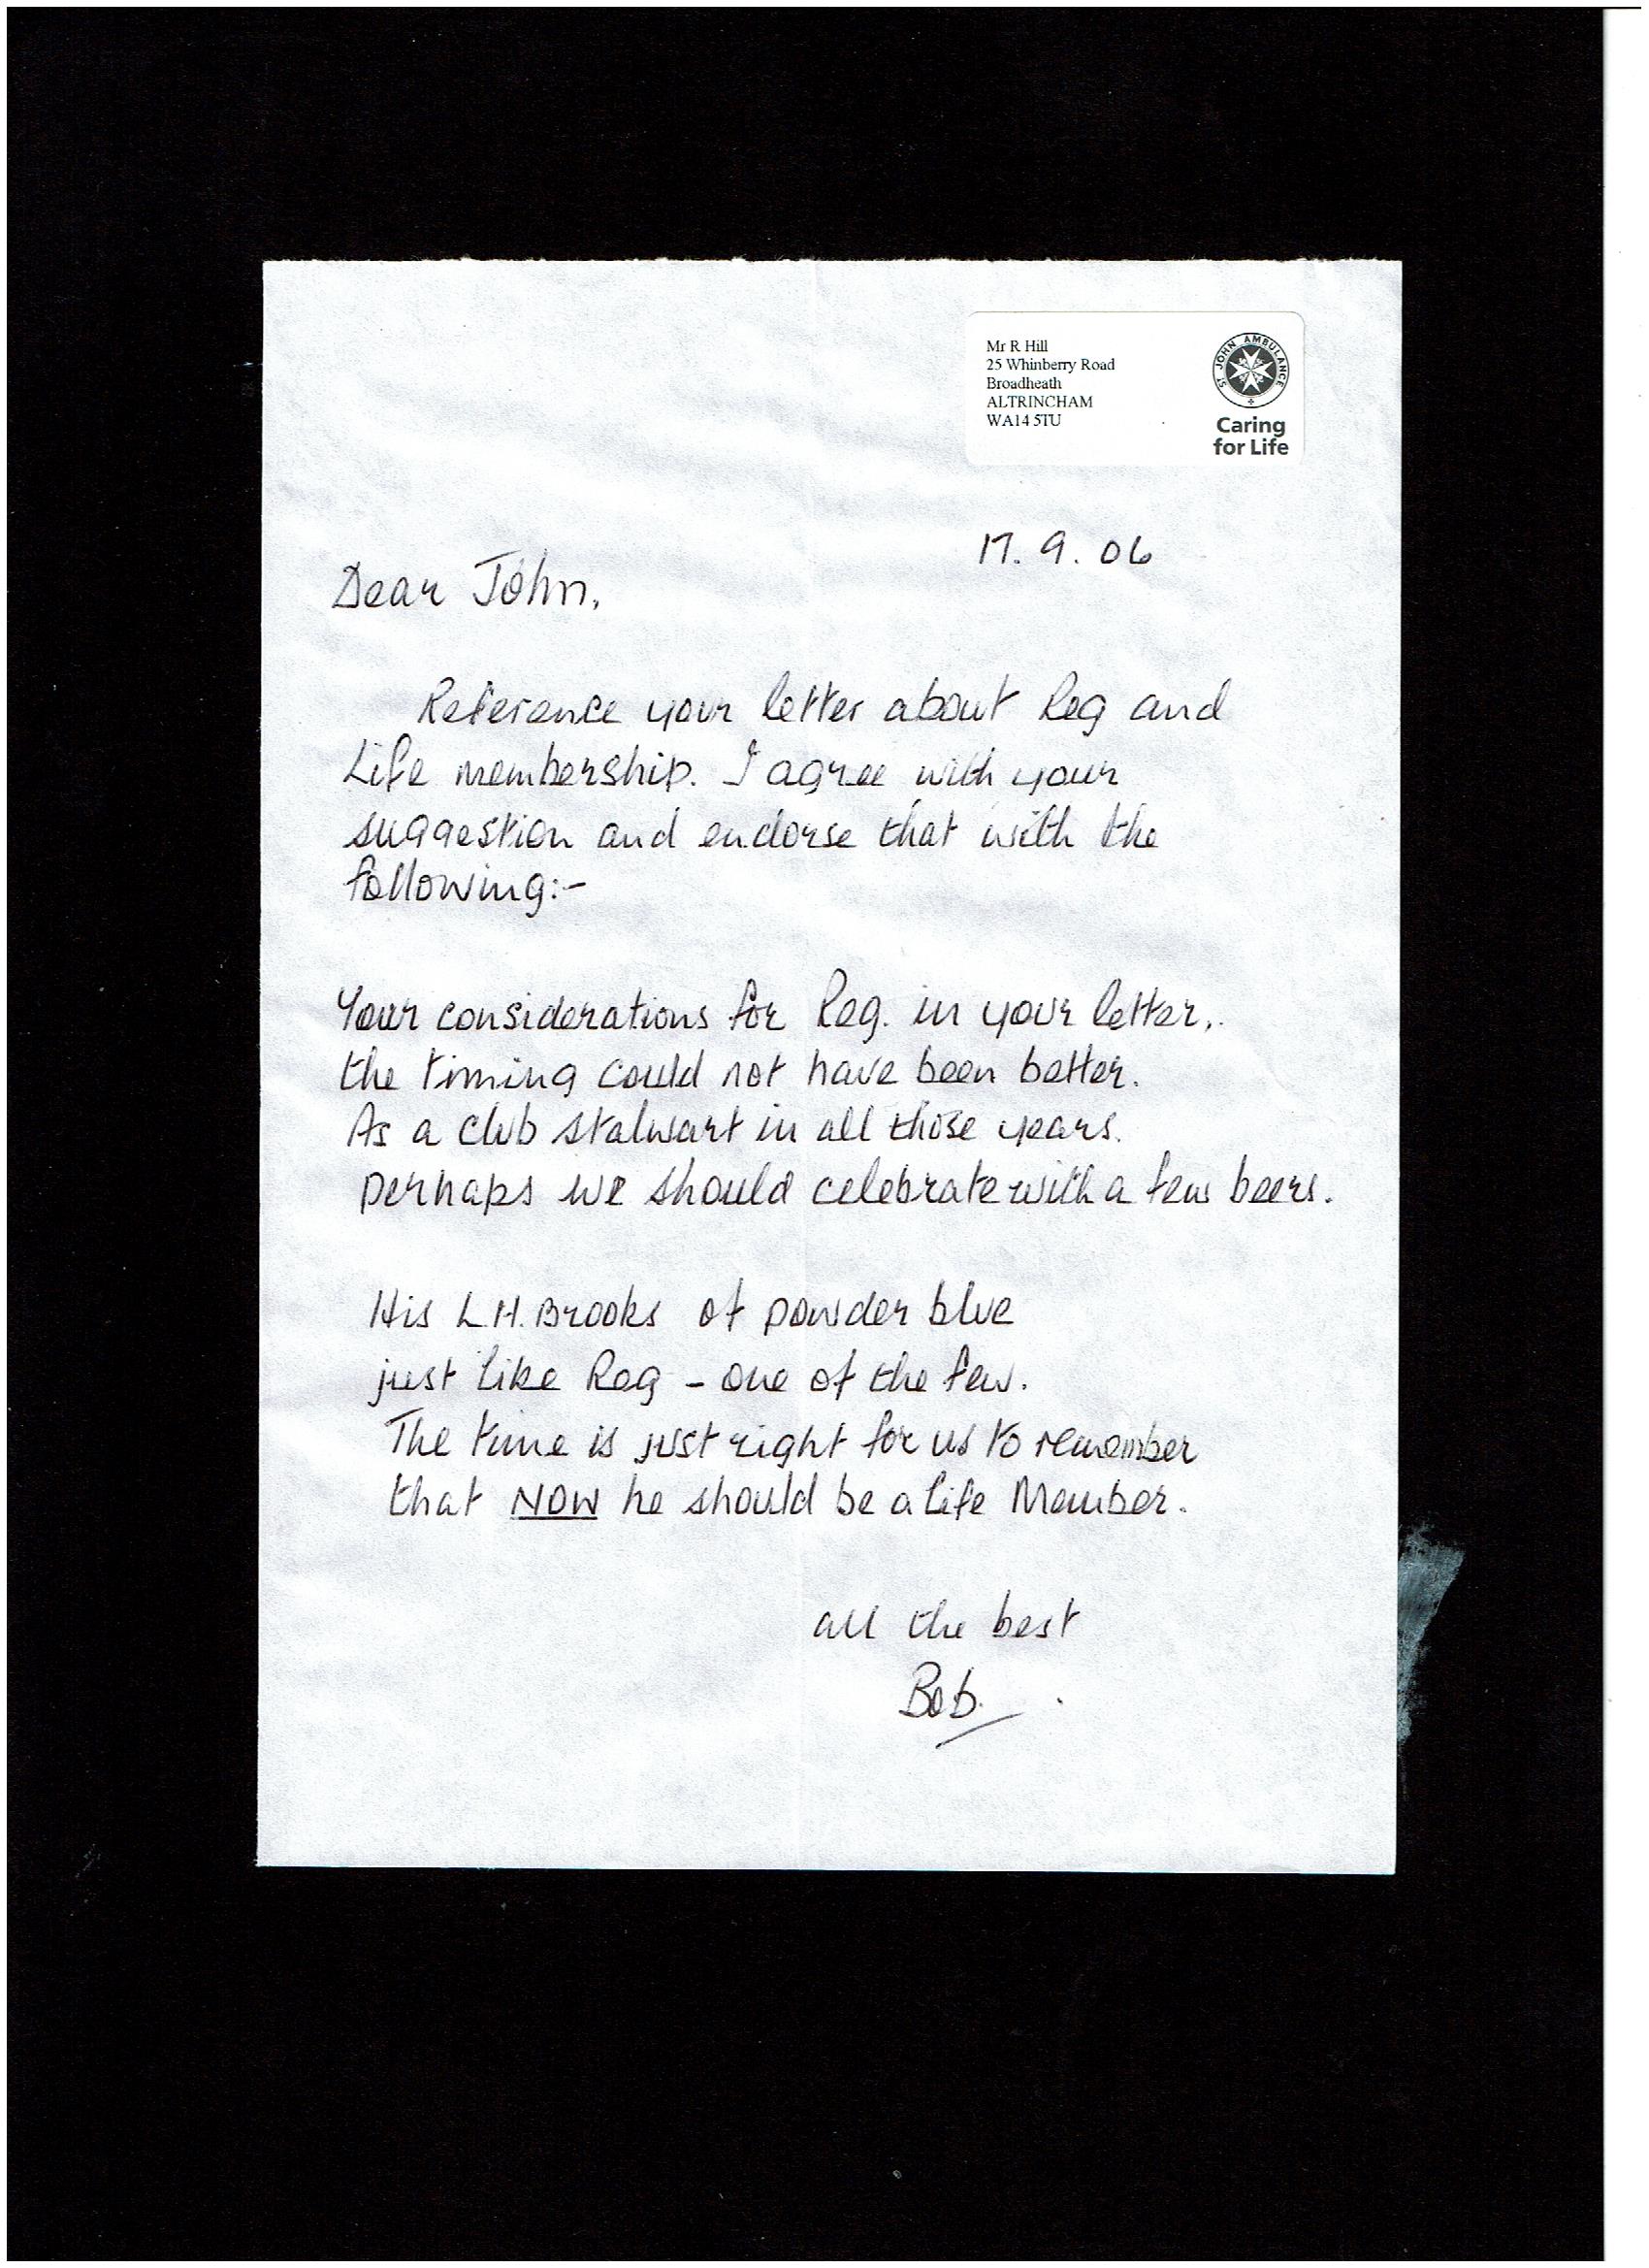 Mr R Hill
25 Whinberry Road
Broadheath
ALTRINCHAM
WA14 5TU
ST JOHN AMBULANCE
Caring
for Life
17. 9. 06
Dear John,
Reference your letter about Reg and
Life membership. I agree with your
suggestion and endorse that with the
following:-
Your considerations for Reg. in your letter,.
the timing could not have been better.
As a club stalwart in all those years.
perhaps we should celebrate with a few beers.
His L.H. Brooks of powder blue
just like Reg - one of the few.
The time is just right for us to remember
that NOW he should be a life Member.
all the best
Bob.